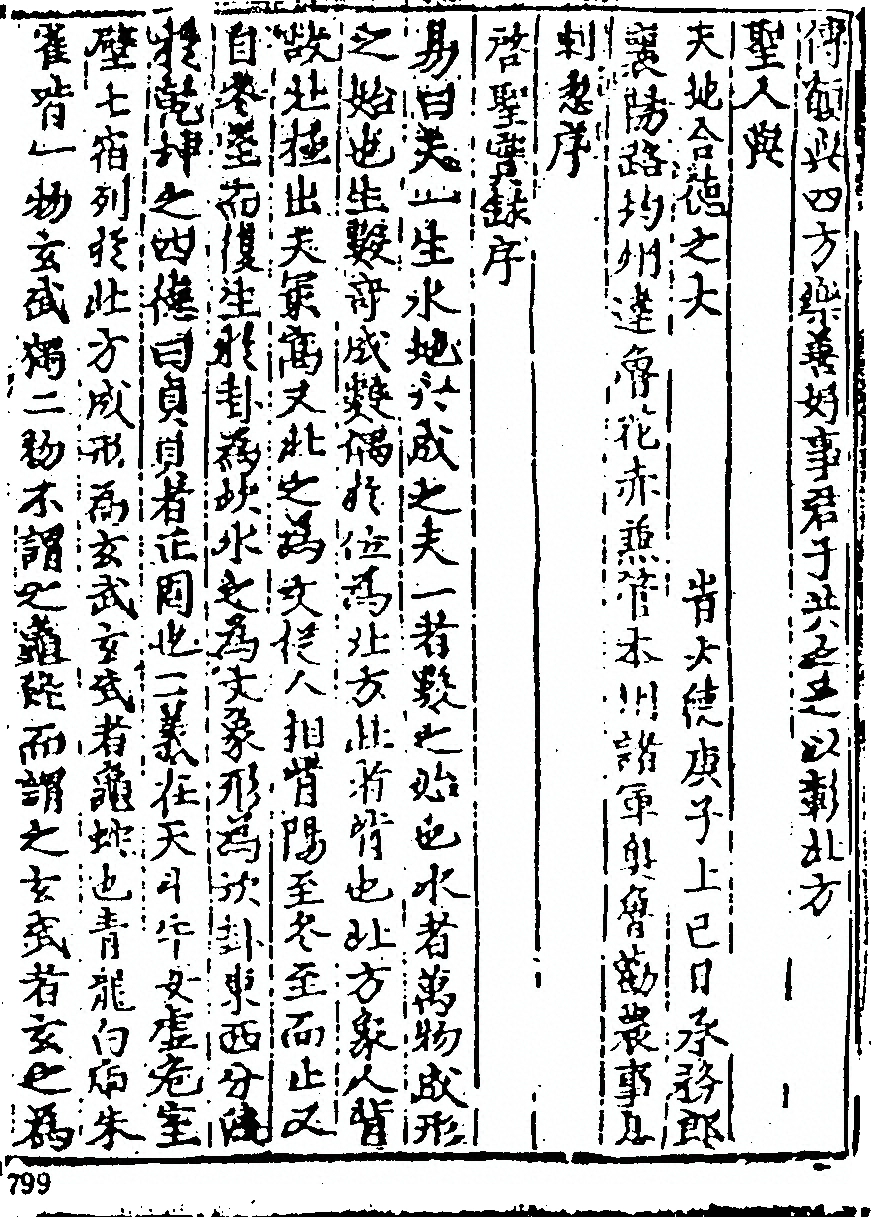 傳願與四方樂善好事君子共之以彰北方
聖人與
天地合德之大 旹大德庚子上巳日承務郎
襄陽路均州達魯花赤兼管本州諸軍奧魯勸農事
序
啓聖實錄序
易曰天一生水地六成之夫一者數之始也水者萬物成形
之始也生數奇成數偶於位爲北方北者背也北方象人背
故北極出天最高又北之爲文從人相背陽至冬至而止又
自冬至而復生於卦爲坎水之爲文象形爲坎卦東西分
於乾坤之四德曰貞貞者正固也二義在天斗牛女虛危室
壁七宿列於北方成形爲玄武玄武者龜蛇也青龍白虎朱
雀皆一物玄武獨二物不謂之龜蛇而謂之玄武者玄之爲
799